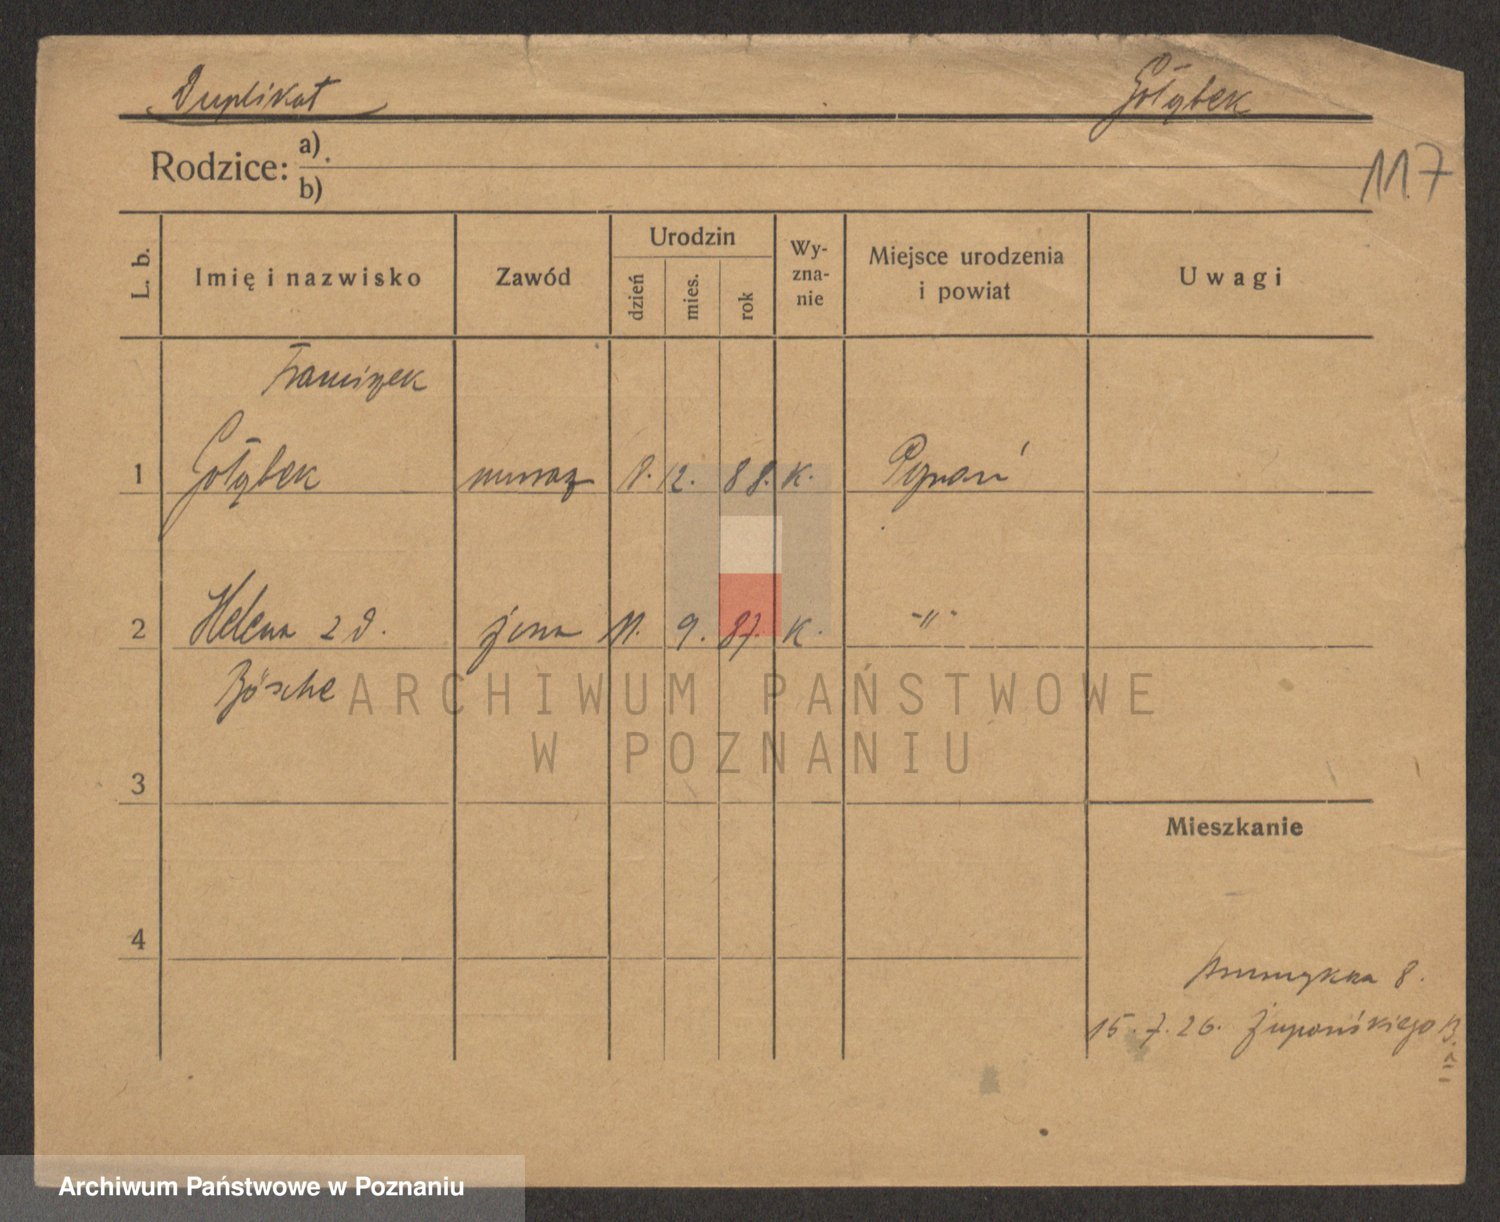 Duplikat
Gołąbek
Rodzice: a)
b)
117
L. b.
Imię i nazwisko
Zawód
Urodzin
dzień
mies.
rok
Wy-
zna-
nie
Miejsce urodzenia
i powiat
Uwagi
Franciszek
1 Gołąbek murarz 8. 12. 88. K. Poznań
2 Helena z d. żona 11. 9. 87. K. -"-
Bösche
ARCHIWUM PAŃSTWOWE
W POZNANIU
3
Mieszkanie
4
8.
15.7.26. Żupańskiego
Archiwum Państwowe w Poznaniu